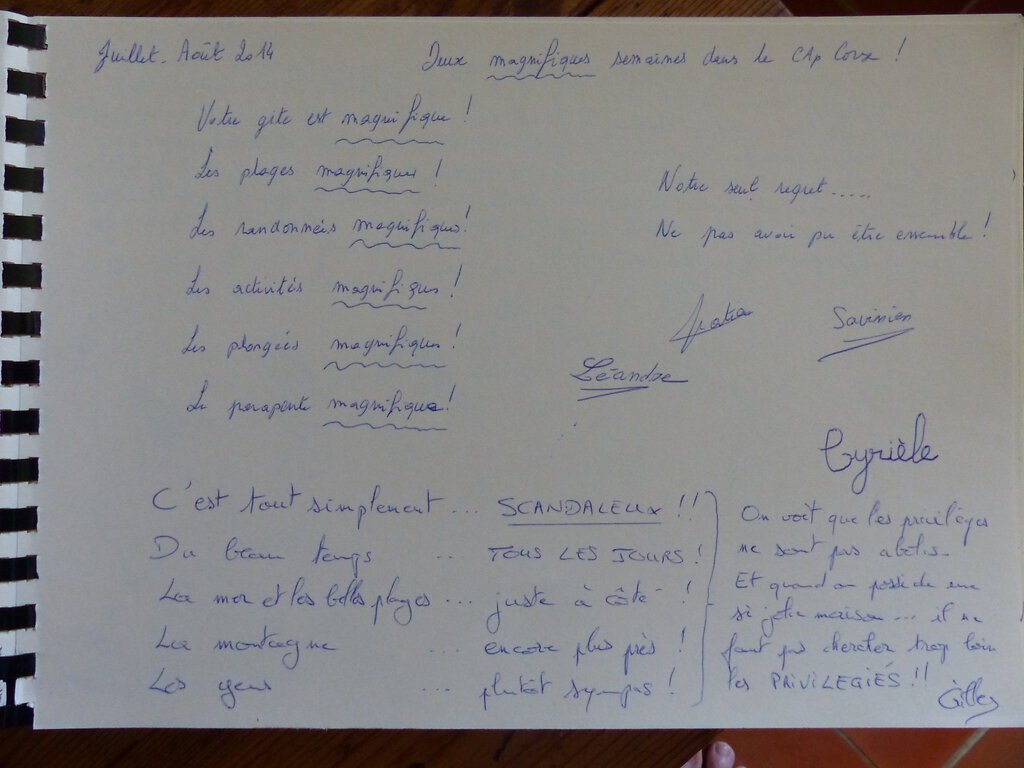 Juillet. Août 2014
Deux magnifiques semaines dans le CAp Corse !
Votre gîte est magnifique !
Les plages magnifiques !
Les randonnées magnifiques!
Les activités magnifiques !
Les plongées magnifiques !
Le parapente magnifique!
Notre seul regret.....
Ne pas avoir pu être ensemble !
Savinien
Léandre
Cyrièle
C'est tout simplement ... SCANDALEUX !!
Du beau temps ... TOUS LES JOURS !
La mer et les belles plages ... juste à côté !
La montagne ... encore plus près !
Les gens ... plutôt sympas !
On voit que les privilèges
ne sont pas abolis.
Et quand on possède une
si jolie maison ... il ne
faut pas chercher trop loin
les PRIVILEGIÉS !!
Gilles